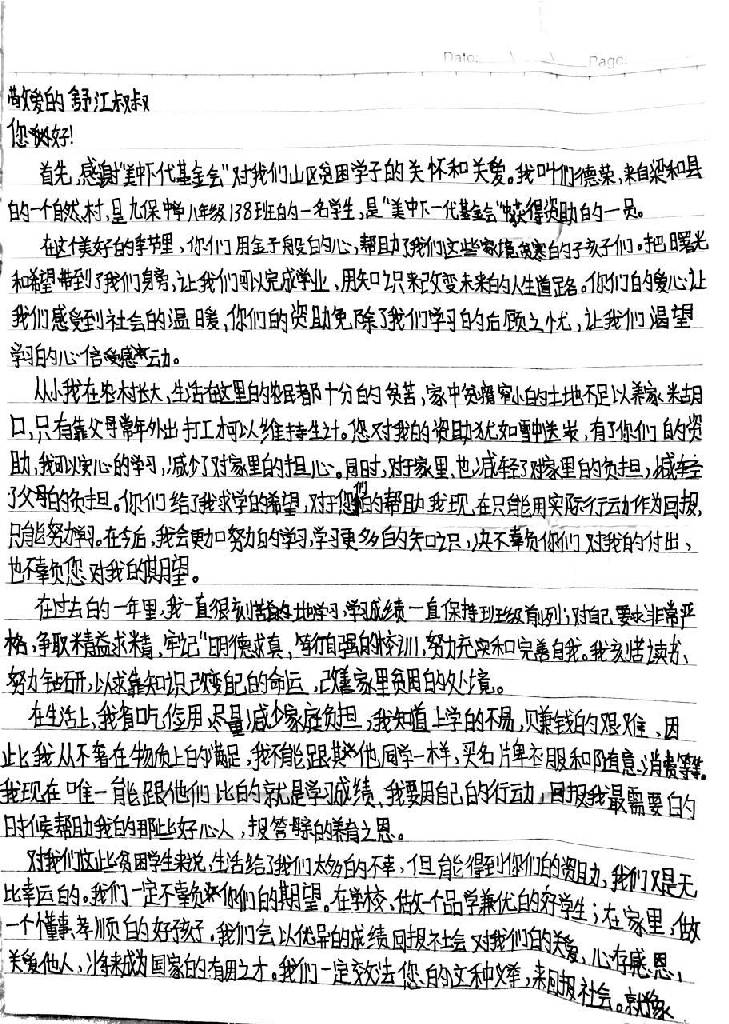 Date: Page:
敬爱的舒江叔叔
您好!
首先,感谢"美中下一代基金会"对我们山区贫困学子的关怀和关爱。我叫们德荣,来自梁和县
的一个自然村,是九保中学八年级138班的一名学生,是"美中下一代基金会"获得资助的一员。
在这个美好的季节里,你们用金子般的心,帮助了我们这些家境贫寒的子孩子们。把曙光
和希望带到了我们身旁,让我们可以完成学业,用知识来改变未来的人生道路。你们的爱心让
我们感受到社会的温暖,你们的资助免除了我们学习的后顾之忧,让我们渴望
学习的心倍受感动。
从小我在农村长大,生活在这里的农民都十分的贫苦,家中贫瘠窄小的土地不足以养家糊
口,只有靠父母常年外出打工才可以维持生计。您对我的资助犹如雪中送炭,有了你们的资
助,我可以安心的学习,减少了对家里的担心。同时,对于家里也减轻了对家里的负担,减轻
了父母的负担。你们给了我求学的希望,对于您们的帮助我现在只能用实际行动作为回报,
只能努力学习。在今后,我会更加努力的学习,学习更多的知识,决不辜负你们对我的付出,
也不辜负您对我的期望。
在过去的一年里,我一直很刻苦的学习,学习成绩一直保持班级前列;对自己要求非常严
格,争取精益求精,牢记"明德求真,笃行自强的校训,努力充实和完善自我。我刻苦读书、
努力钻研,以求靠知识改变自己的命运,改善家里贫困的处境。
在生活上,我省吃俭用,尽量减少家庭负担,我知道上学的不易,赚钱的艰难、因
此我从不奢在物质上的满足,我不能跟其他同学一样,买名片牌衣服和随意消费等等。
我现在唯一能跟他们比的就是学习成绩、我要用自己的行动,回报我最需要的
时候帮助我的那些好心人,报答母亲的养育之恩。
对我们这些贫困学生来说,生活给了我们太多的不幸,但能得到你们的资助,我们又是无
比幸运的。我们一定不辜负你们的期望。在学校、做一个品学兼优的好学生;在家里,做
一个懂事、孝顺的好孩子。我们会以优异的成绩回报社会对我们的关爱,心存感恩,
关爱他人,将来成为国家的有用之才。我们一定效法您的文种精,来回报社会。就像